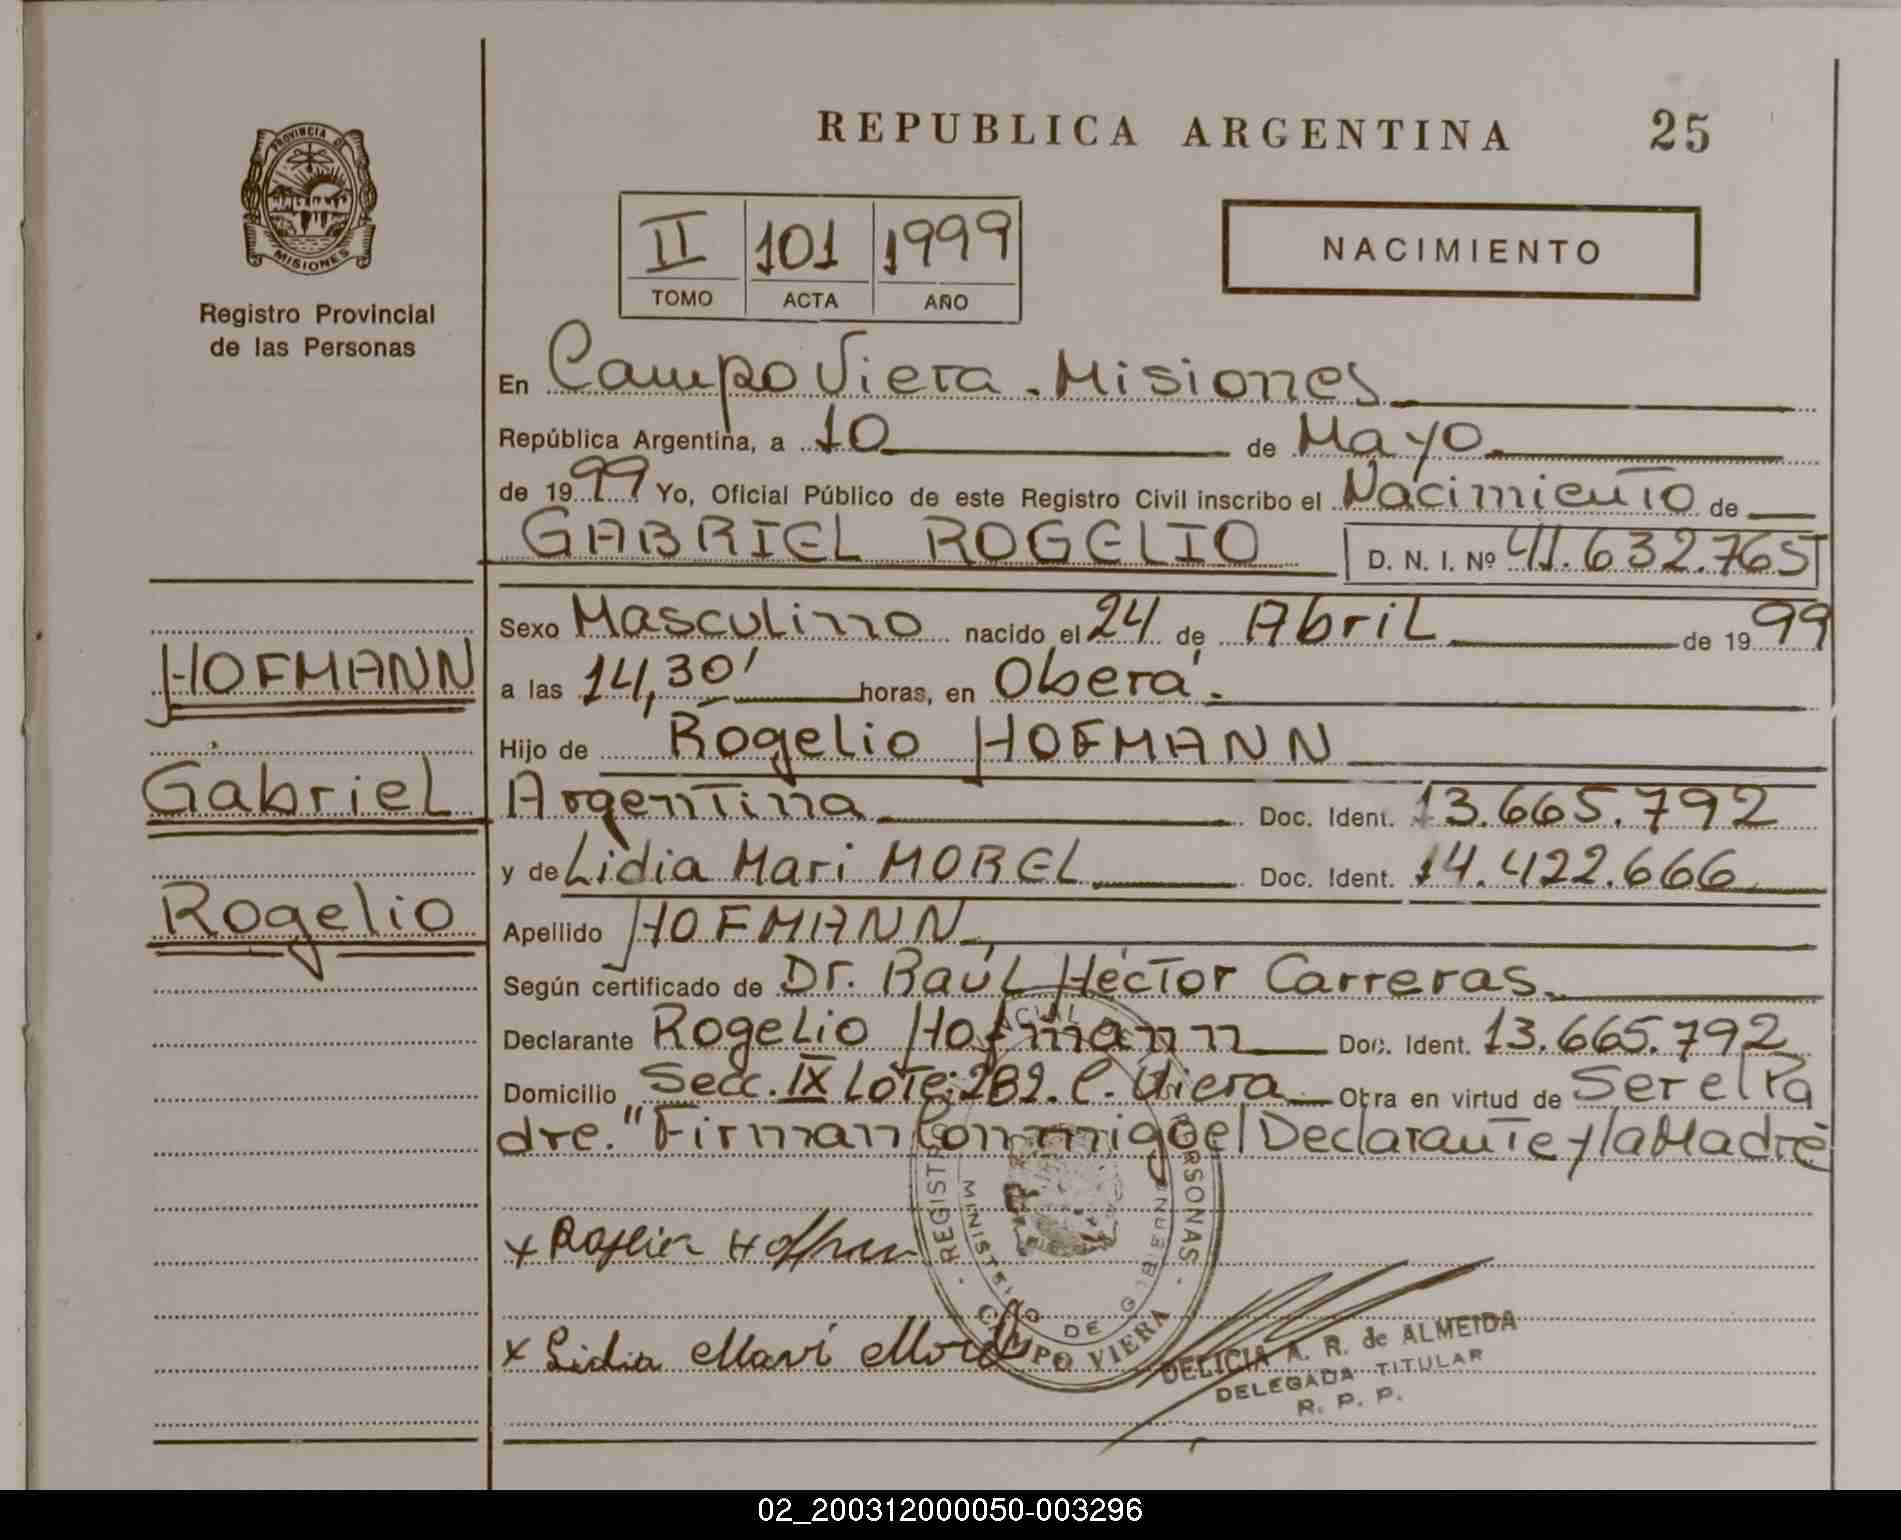 REPUBLICA ARGENTINA 25
PROVINCIA DE
MISIONES
Registro Provincial
de las Personas
II 101 1999
TOMO ACTA AÑO
NACIMIENTO
En Campo Viera - Misiones
República Argentina, a 10 de Mayo
de 1999 Yo, Oficial Público de este Registro Civil inscribo el Nacimiento de
GABRIEL ROGELIO D. N. I. Nº 41.632.765
HOFMANN
Gabriel
Rogelio
Sexo Masculino nacido el 24 de Abril de 1999
a las 14,30' horas, en Oberá.
Hijo de Rogelio HOFMANN
Argentina Doc. Ident. 13.665.792
y de Lidia Mari MOREL Doc. Ident. 14.422.666
Apellido HOFMANN
Según certificado de Dr. Raúl Héctor Carreras.
Declarante Rogelio Hofmann Doc. Ident. 13.665.792
Domicilio Secc. IX Lote: 282. C. Viera Obra en virtud de Ser el Pa
dre. "Firman Conmigo el Declarante y la Madre
x Rogelio Hofman
x Lidia Mari Morel
CAMPO VIERA
DELICIA A. R. de ALMEIDA
DELEGADA TITULAR
R. P. P.
02_200312000050-003296